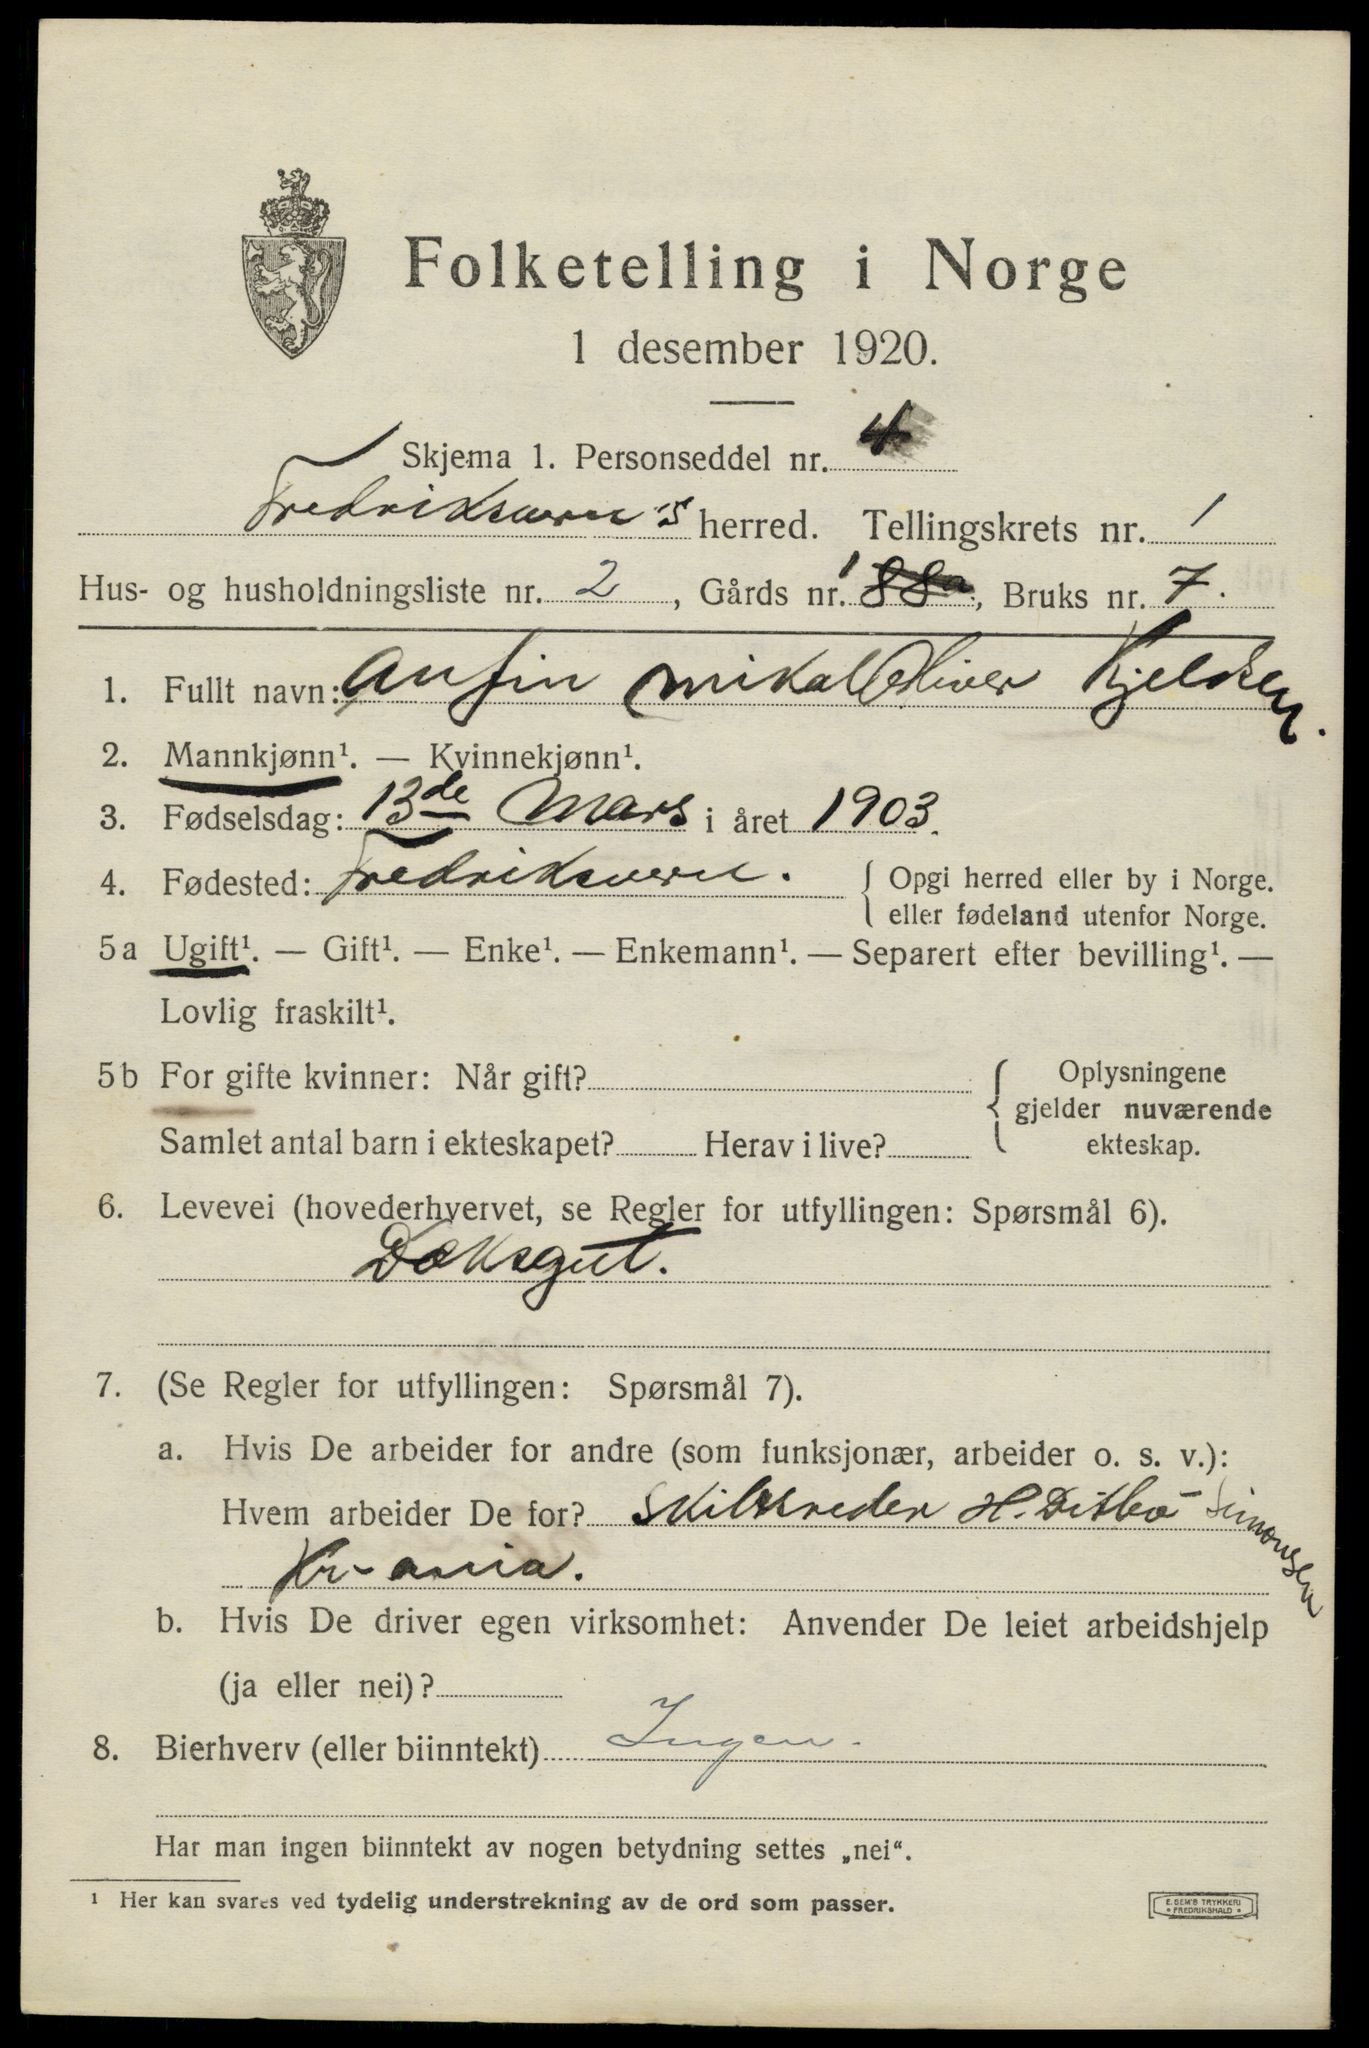 Folketelling i Norge
1 desember 1920.
Skjema 1. Personseddel nr. 4
Fredriksværn's herred. Tellingskrets nr. 1
Hus- og husholdningsliste nr. 2, Gårds nr. 1 88a, Bruks nr. 7.
1. Fullt navn: Anfin Mikal Oliver Kjeldsen.
2. Mannkjønn¹. — Kvinnekjønn¹.
3. Fødselsdag: 13de Mars i året 1903.
4. Fødested: Fredriksværn. { Opgi herred eller by i Norge.
eller fødeland utenfor Norge.
5a Ugift¹. — Gift¹. — Enke¹. — Enkemann¹. — Separert efter bevilling¹. —
Lovlig fraskilt¹.
5b For gifte kvinner: Når gift? { Oplysningene
gjelder nuværende
Samlet antal barn i ekteskapet? Herav i live? ekteskap.
6. Levevei (hovederhvervet, se Regler for utfyllingen: Spørsmål 6).
Dæksgut.
7. (Se Regler for utfyllingen: Spørsmål 7).
a. Hvis De arbeider for andre (som funksjonær, arbeider o. s. v.):
Hvem arbeider De for? Skibsreder H. Ditlev Simonsen
Kr-ania.
b. Hvis De driver egen virksomhet: Anvender De leiet arbeidshjelp
(ja eller nei)?
8. Bierhverv (eller biinntekt) Ingen.
Har man ingen biinntekt av nogen betydning settes „nei“.
¹ Her kan svares ved tydelig understrekning av de ord som passer.
E. SEM'S TRYKKERI
• FREDRIKSHALD •